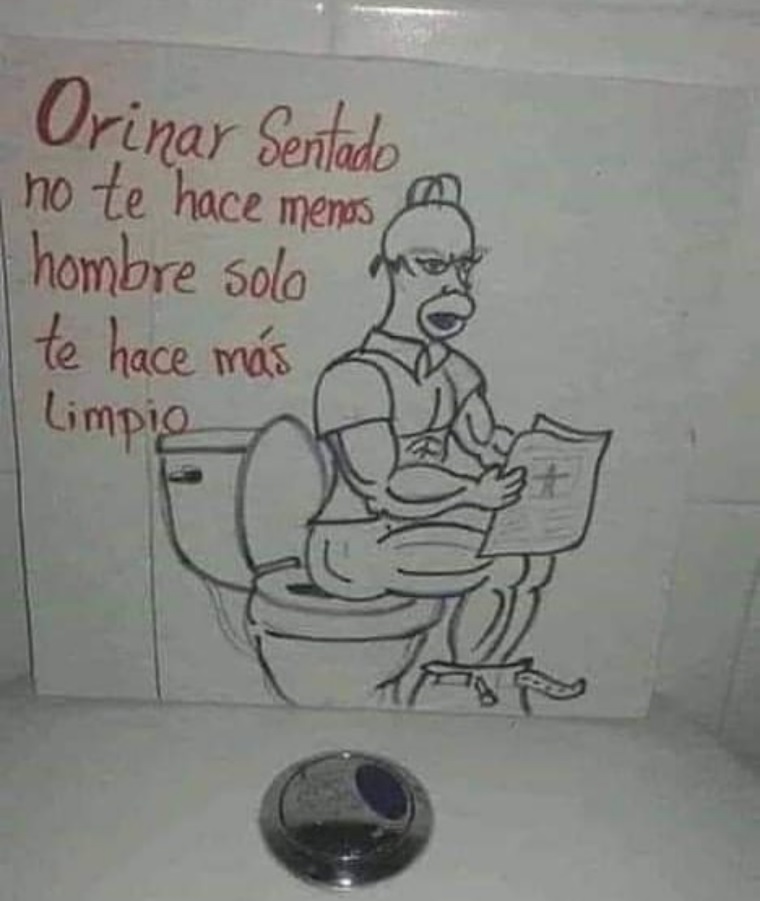 Orinar Sentado
no te hace menos
hombre solo
te hace más
Limpio